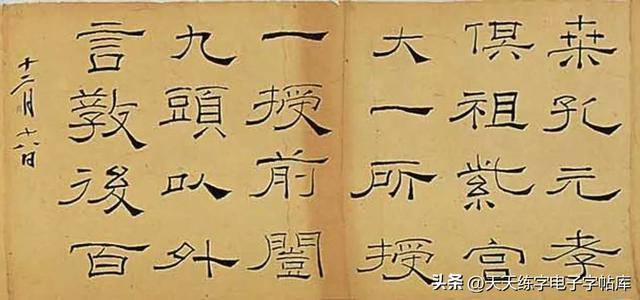 桒孔元孝
俱祖紫宮
大一所授
一授前闓
九頭以外
言敎後百
十二月十六日
头条 @天天练字电子字帖库